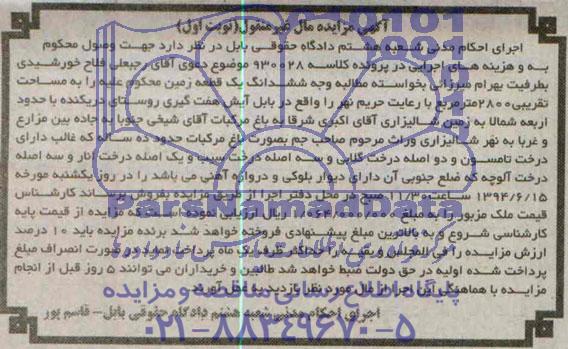 آگهی مزایده مال غیر منقول(نوبت اول)
اجرای احکام مدنی شعبه هشتم دادگاه حقوقی بابل در نظر دارد جهت وصول محکوم
به و هزینه های اجرایی در پرونده کلاسه 930028 موضوع دعوی آقای رجبعلی فلاح خورشیدی
بطرفیت بهرام میرزائی بخواسته مطالبه وجه ششدانگ یک قطعه زمین محکوم علیه را به مساحت
تقریبی 2800مترمربع با رعایت حریم نهر را واقع در بابل آیش هفت گیری روستای دریکنده با حدود
اربعه شمالا به زمین شالیزاری آقای اکبری شرقا به باغ مرکبات آقای شیخی جنوبا به جاده بین مزارع
و غربا به نهر شالیزاری وراث مرحوم صاحب جم بصورت باغ مرکبات حدود ده ساله که غالب دارای
درخت تامسون و دو اصله درخت گلابی و سه اصله درخت سیب و یک اصله درخت انار و سه اصله
درخت آلوچه که ضلع جنوبی آن دارای دیوار بلوکی و دروازه آهنی می باشد را در روز یکشنبه مورخه
1394/6/15 ساعت 11/30 صبح در محل دفتر اجرا از طریق مزایده بفروش برساند کارشناس
قیمت ملک مزبور را به مبلغ 1/064/000/000 ریال ارزیابی نموده است که مزایده از قیمت پایه
کارشناسی شروع و به بالاترین مبلغ پیشنهادی فروخته خواهد شد برنده مزایده باید 10 درصد
ارزش مزایده را فی المجلس و بقیه را حداکثر ظرف یک ماه پرداخت نماید در صورت انصراف مبلغ
پرداخت شده اولیه در حق دولت ضبط خواهد شد طالبین و خریداران می توانند 5 روز قبل از انجام
مزایده با هماهنگی این اجرا از مال مورد نظر بازدید به عمل آورند.
اجرای احکام مدنی شعبه هشتم دادگاه حقوقی بابل - قاسم پور
ParsNamadData
پایگاه اطلاع رسانی مناقصه و مزایده
۰۲۱-۸۸۳۴۹۶۷۰-۵